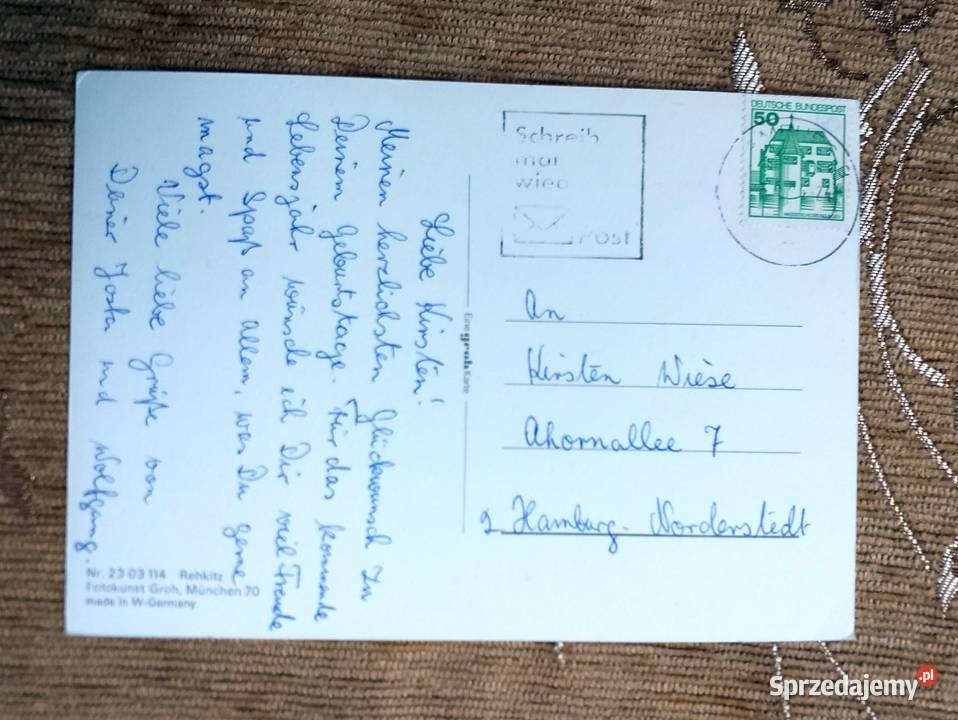 Liebe Kirsten!
Meinen herzlichsten Glückwunsch zu
Deinem Geburtstage. Für das kommende
Lebensjahr wünsche ich Dir viel Freude
und Spaß an allem, was Du gerne
magst.
Viele liebe Grüße von
Deiner Josta und Wolfgang.
Nr. 23 03 114 Rehkitz
Fotokunst Groh, München 70
made in W-Germany
Eine groh Karte
Schreib
mal
wied
POST
DEUTSCHE BUNDESPOST
50
An
Kirsten Wiese
Ahornallee 7
2 Hamburg-Norderstedt
Sprzedajemy.pl